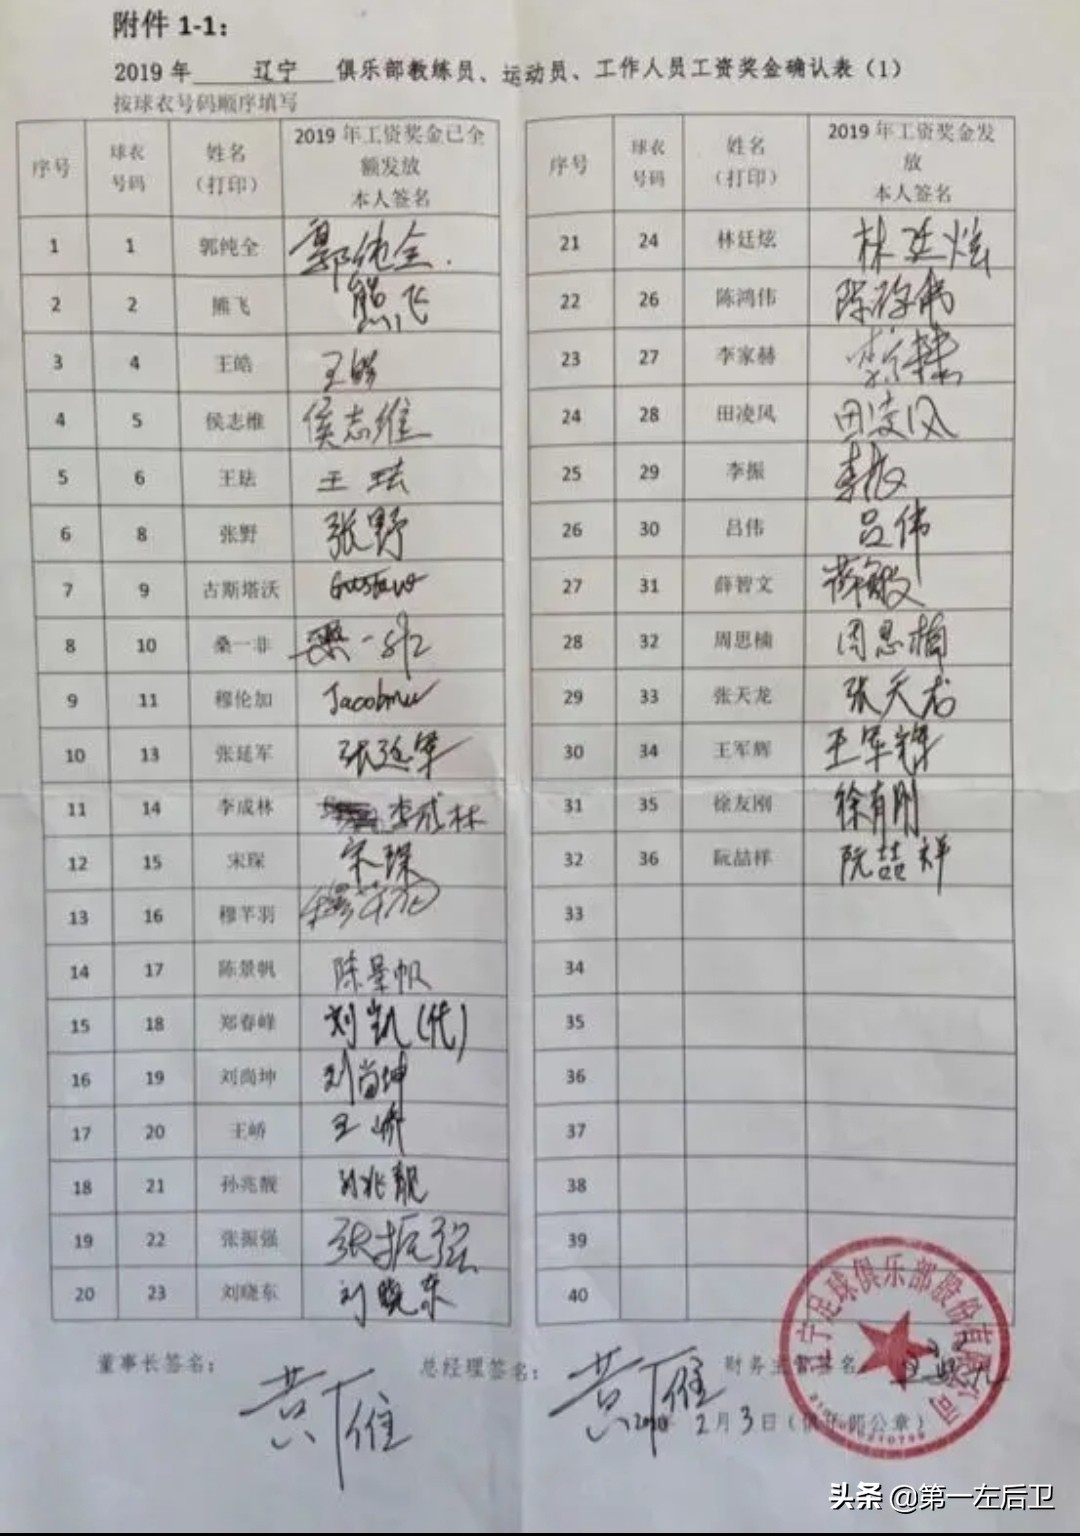 附件 1-1：
2019 年 辽宁 俱乐部教练员、运动员、工作人员工资奖金确认表（1）
按球衣号码顺序填写
序号 球衣号码 姓名（打印） 2019 年工资奖金已全额发放 本人签名
1 1 郭纯全 郭纯全.
2 2 熊飞 熊飞
3 4 王皓 王皓
4 5 侯志维 侯志维
5 6 王珐 王珐
6 8 张野 张野
7 9 古斯塔沃 Gustavo
8 10 桑一非 桑一非
9 11 穆伦加 Jacobmu
10 13 张延军 张延军
11 14 李成林 李成林
12 15 宋琛 宋琛
13 16 穆芊羽 穆芊羽
14 17 陈景帆 陈景帆
15 18 郑春峰 刘凯(代)
16 19 刘尚坤 刘尚坤
17 20 王峤 王峤
18 21 孙兆靓 孙兆靓
19 22 张振强 张振强
20 23 刘晓东 刘晓东
序号 球衣号码 姓名（打印） 2019 年工资奖金发放 本人签名
21 24 林廷炫 林廷炫
22 26 陈鸿伟
23 27 李家赫 李家赫
24 28 田凌风 田凌风
25 29 李振 李振
26 30 吕伟 吕伟
27 31 薛智文
28 32 周思楠 周思楠
29 33 张天龙 张天龙
30 34 王军辉 王军辉
31 35 徐友刚 徐有刚
32 36 阮喆样 阮喆祥
33
34
35
36
37
38
39
40
董事长签名： 黄雁 总经理签名： 黄雁 财务主管签名
2020 2月3日（俱乐部公章）
辽宁足球俱乐部股份有限公司
头条 @第一左后卫